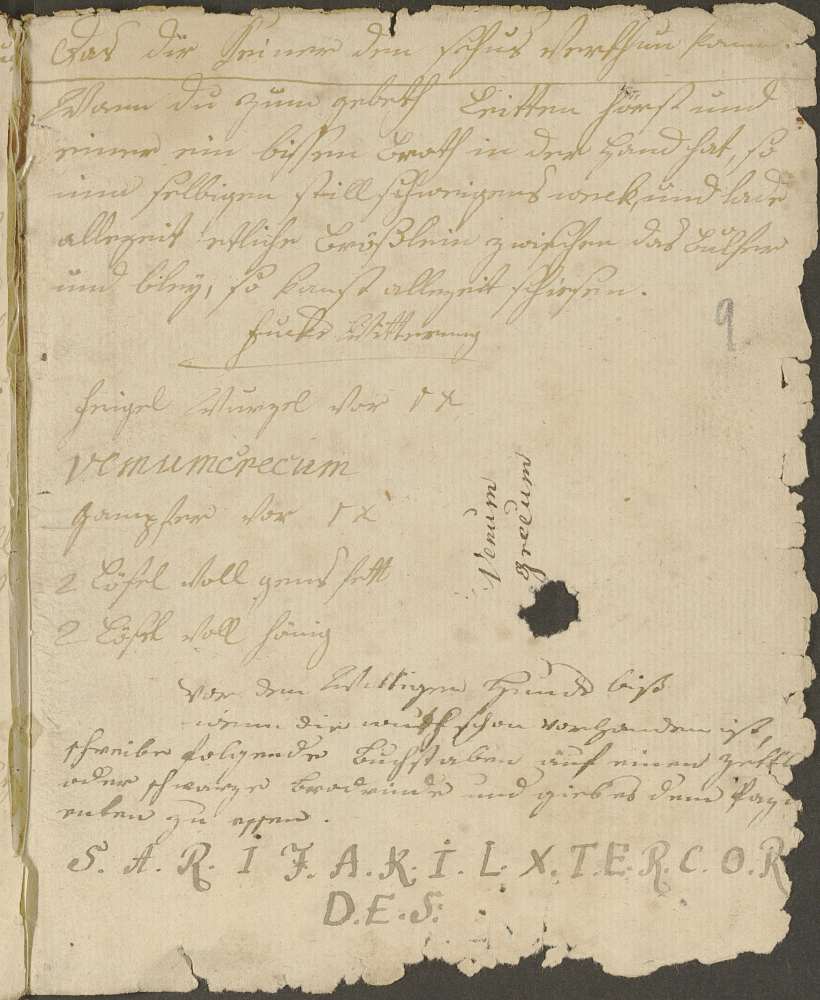 Das dir Keiner den schus verthun kann.
Wann du zum gebeth Leitten hörst und
einer ein bissen Broth in der Hand hat, so
nim selbigen still schweigens weck, und lade
allezeit etliche Brößlein zwischen das Bulfer
und bley, so kanst allezeit schiesen.
9
fuchs Witterung
feigel Wurzel vor 1 x
venumcrecum
gampfer vor 1 x
2 Löfel voll gens fett
2 Löfel voll hönig
Venum
grecum
Vor den Wittigen Hunds biß
wenn die wuth schon vorhanden ist,
schreibe folgende Buchstaben auf einen zettl
oder schwarze brodrinde und gieb es dem Pazi
enten zu essen.
S. A. R. I F. A. K. I. L. X. T. E. R. C. O. R
D. E. S.